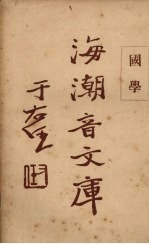 國學
海潮音文庫
于右任